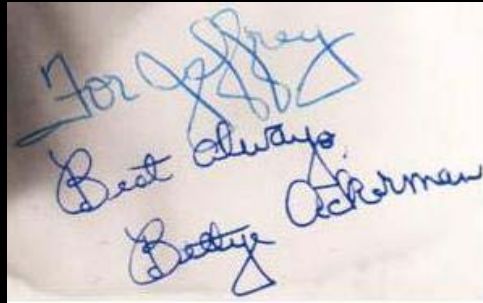 For Jeffrey
Best always,
Bettye Ackerman